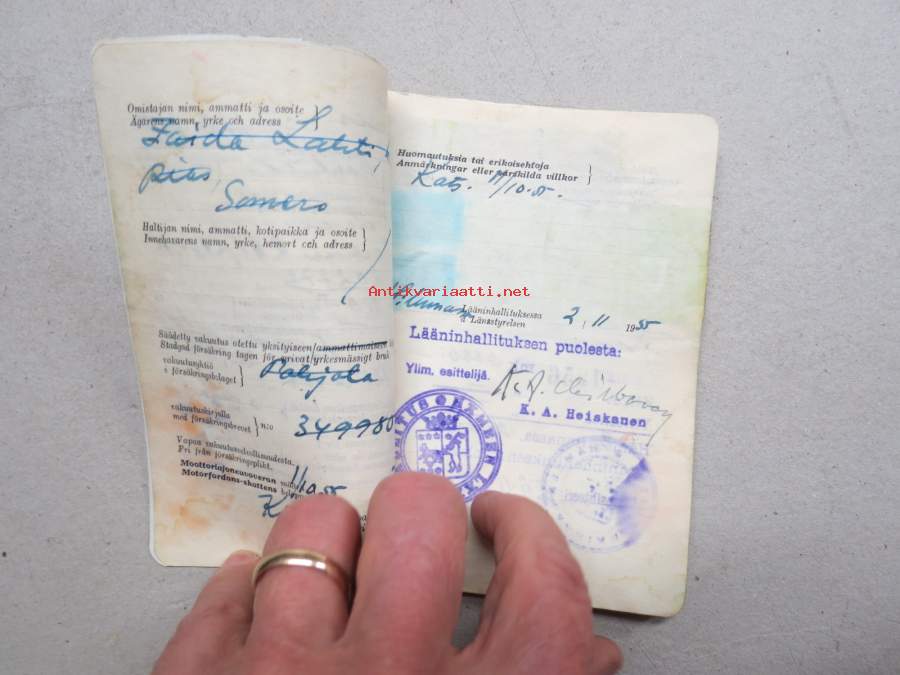 Omistajan nimi, ammatti ja osoite
Ägarens namn, yrke och adress
Lahti
Somero
Haltijan nimi, ammatti, kotipaikka ja osoite
Innehavarens namn, yrke, hemort och adress
Säädetty vakuutus otettu yksityiseen/ammattimaiseen
Stadgad försäkring tagen för privat/yrkesmässigt bruk
vakuutusyhtiö
i försäkringsbolaget
Pohjola
vakuutuskirjalla
med försäkringsbrevet
n:o 349980
Vapaa vakuutusvelvollisuudesta.
Fri från försäkringsplikt.
Moottoriajoneuvoveron
Motorfordons-skattens
11/10.55
Huomautuksia tai erikoisehtoja
Anmärkningar eller särskilda villkor
Kats. 11/10-55.
Antikvariaatti.net
Lääninhallituksessa
å Länsstyrelsen
2.11 1955
Lääninhallituksen puolesta:
Ylim. esittelijä.
K. A. Heiskanen